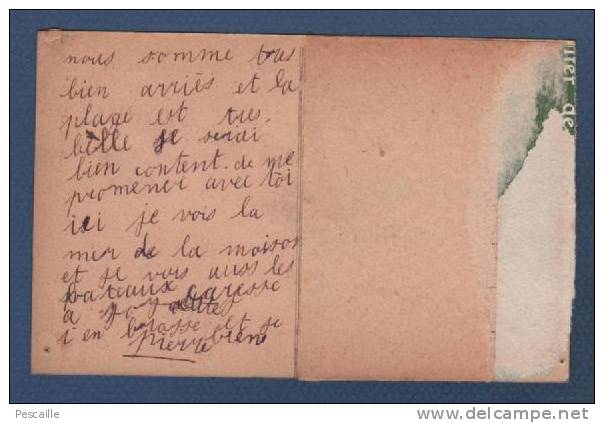 nous somme tres
bien arriès et la
plage est tres
belle je serai
bien content de me
promener avec toi
ici je vois la
mer de la maison
et je vois auss les
bateaux caresse
a
j en brasse et je
Pierre bien
uier de
Pescaille
www.delcampe.net